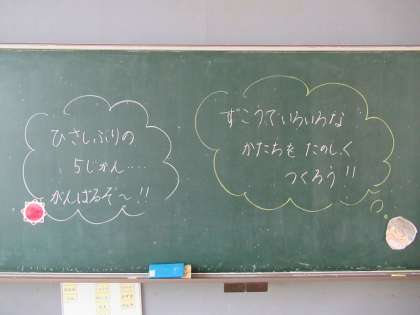 ひさしぶりの
5じかん....
がんばるぞ〜!!
ずこうでいろいろな
かたちを たのしく
つくろう!!